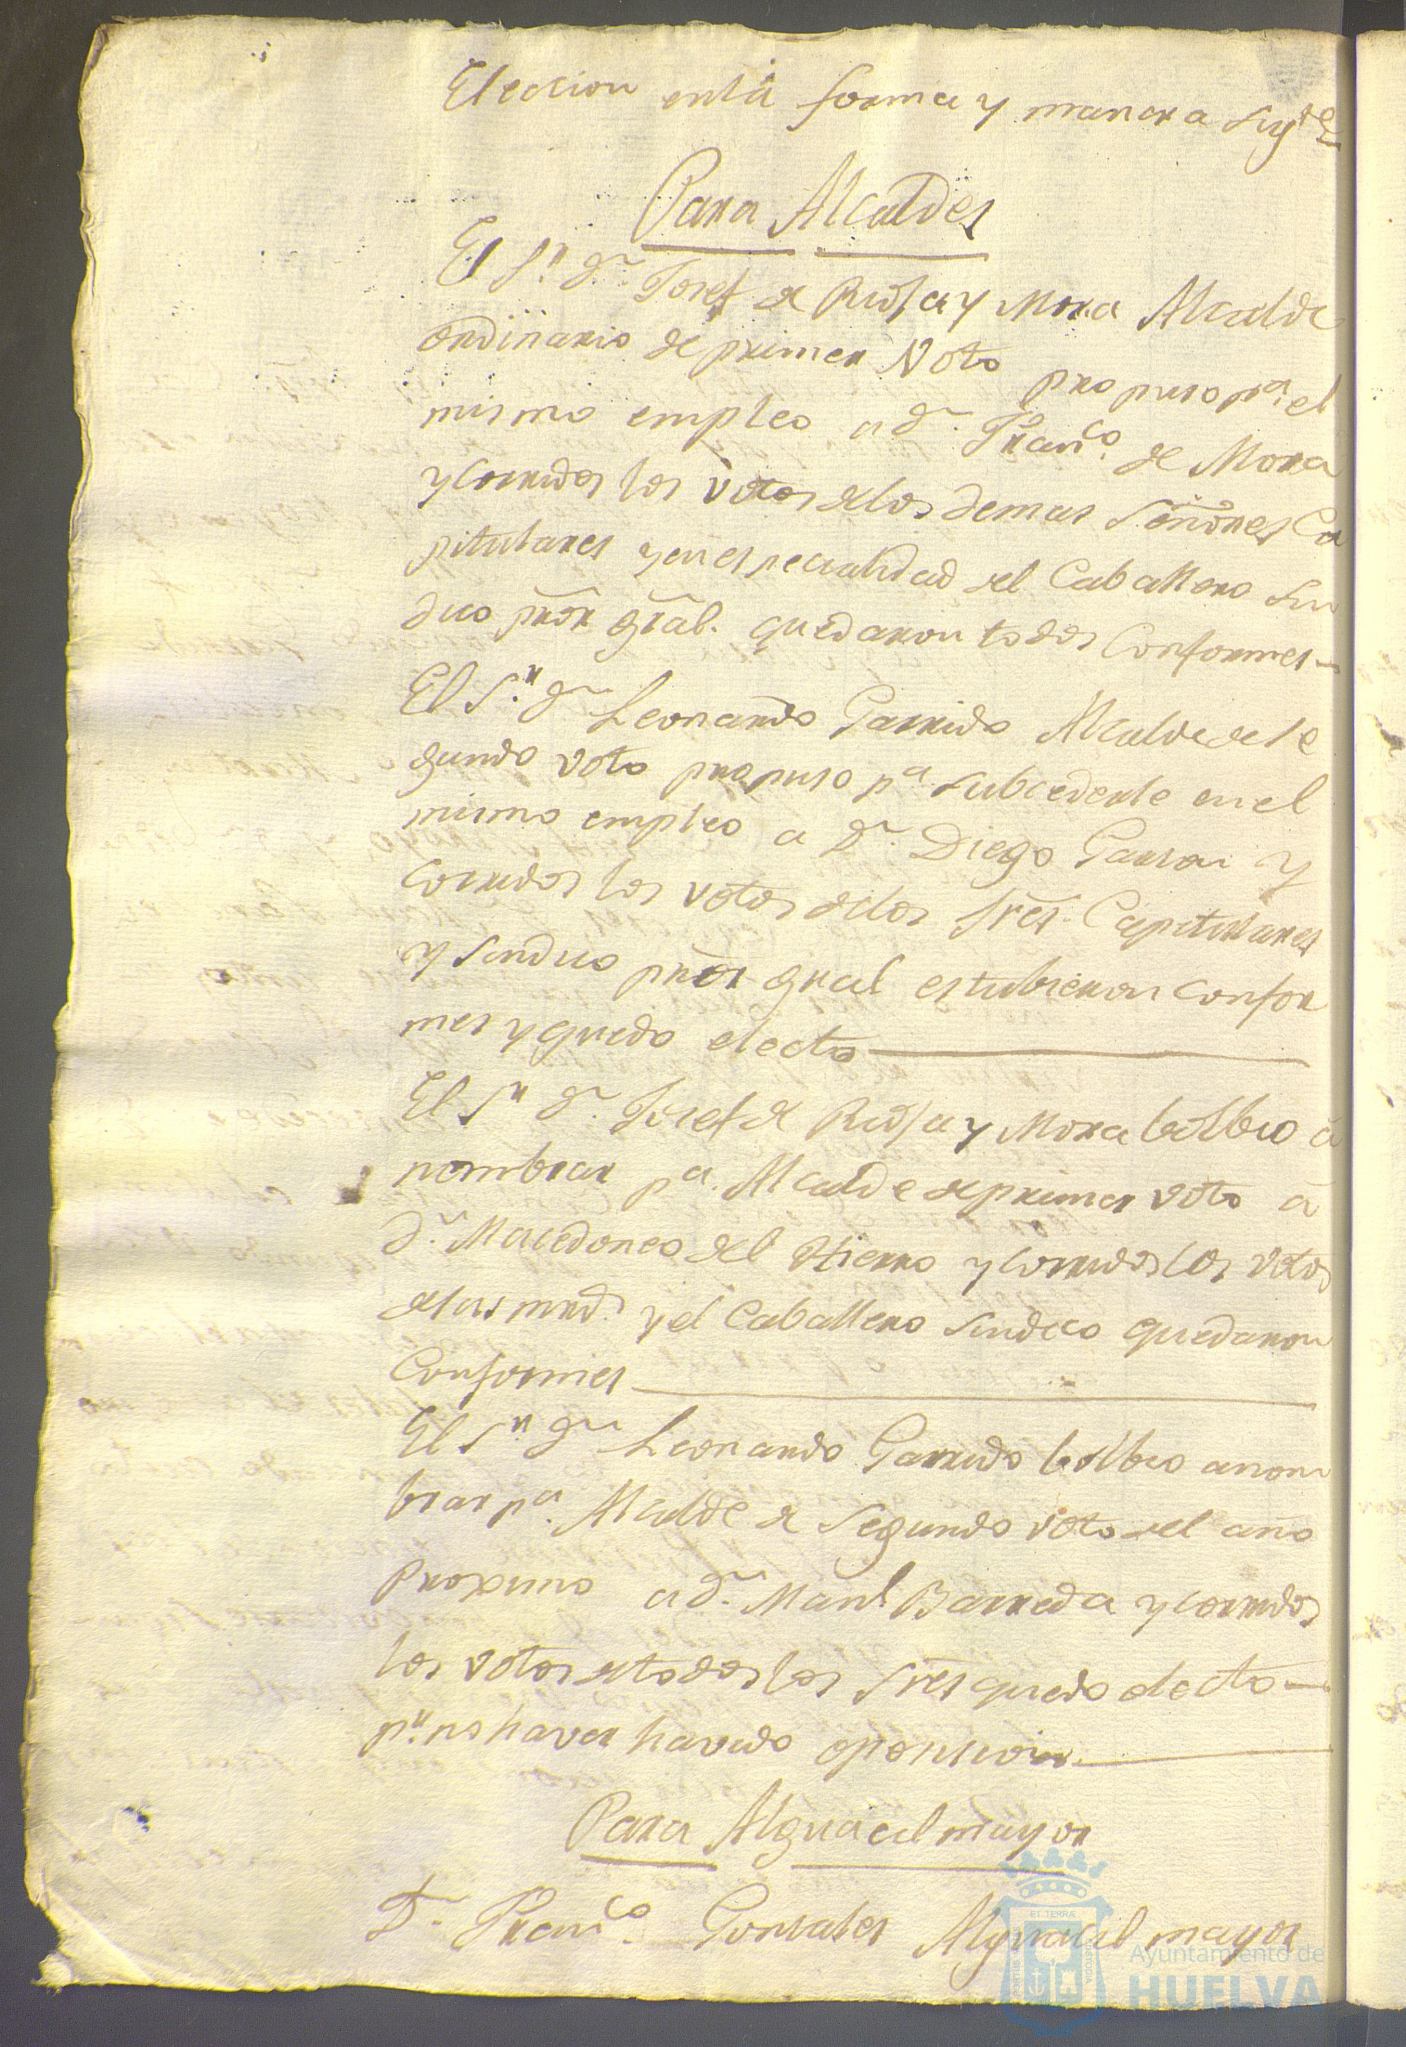 Eleccion enla forma y manera sigtes
Para Alcaldes
El Sr. Dn. Josef de Rioja y Mora Alcalde
ordinario de primer Voto propuso pa. el
mismo empleo a Dn. Franco. de Mora
y corridos los votos delos demas Señores Ca
pitulares y en especialidad del Caballero Sin
dico pror gral. quedaron todos Conformes
El Sr. Dn Leonardo Garrido Alcalde de se
gundo voto propuso pa. subcederle en el
mismo empleo a Dn. Diego Garsia y
corridos los votos delos Sres. Capitulares
y Sindico pror gral estubieron confor
mes y quedo electo
El Sr Dn. Josef de Rioja y Mora bolbio â
nombrar pa. Alcalde de primer voto â
Dn. Macedoneo del Hierro y corridos los votos
de sus mrds. y el Caballero Sindico quedaron
Conformes
El Sr Dn Leonardo Garrido bolbio a nom
brar pa. Alcalde de Segundo voto del año
proximo a Dn. Manl Barreda y corridos
los votos de todos los Sres quedo electo
pr. no haver havido oposicion
Para Alguacil mayor
Dn. Franco. Gonsales Alguacil mayor
ET TERRÆ
Ayuntamiento de
HUELVA